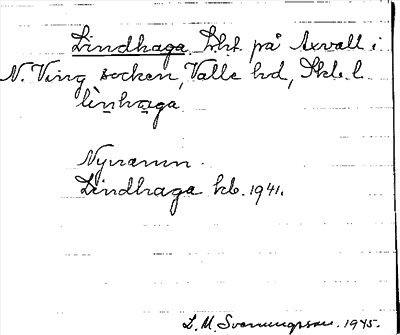 Lindhaga. Lht. på Axvall i
N. Ving socken, Valle hd, Skb. l.
lìnhaga
Nynamn.
Lindhaga kb. 1941.
L. M. Svenungsson. 1945.